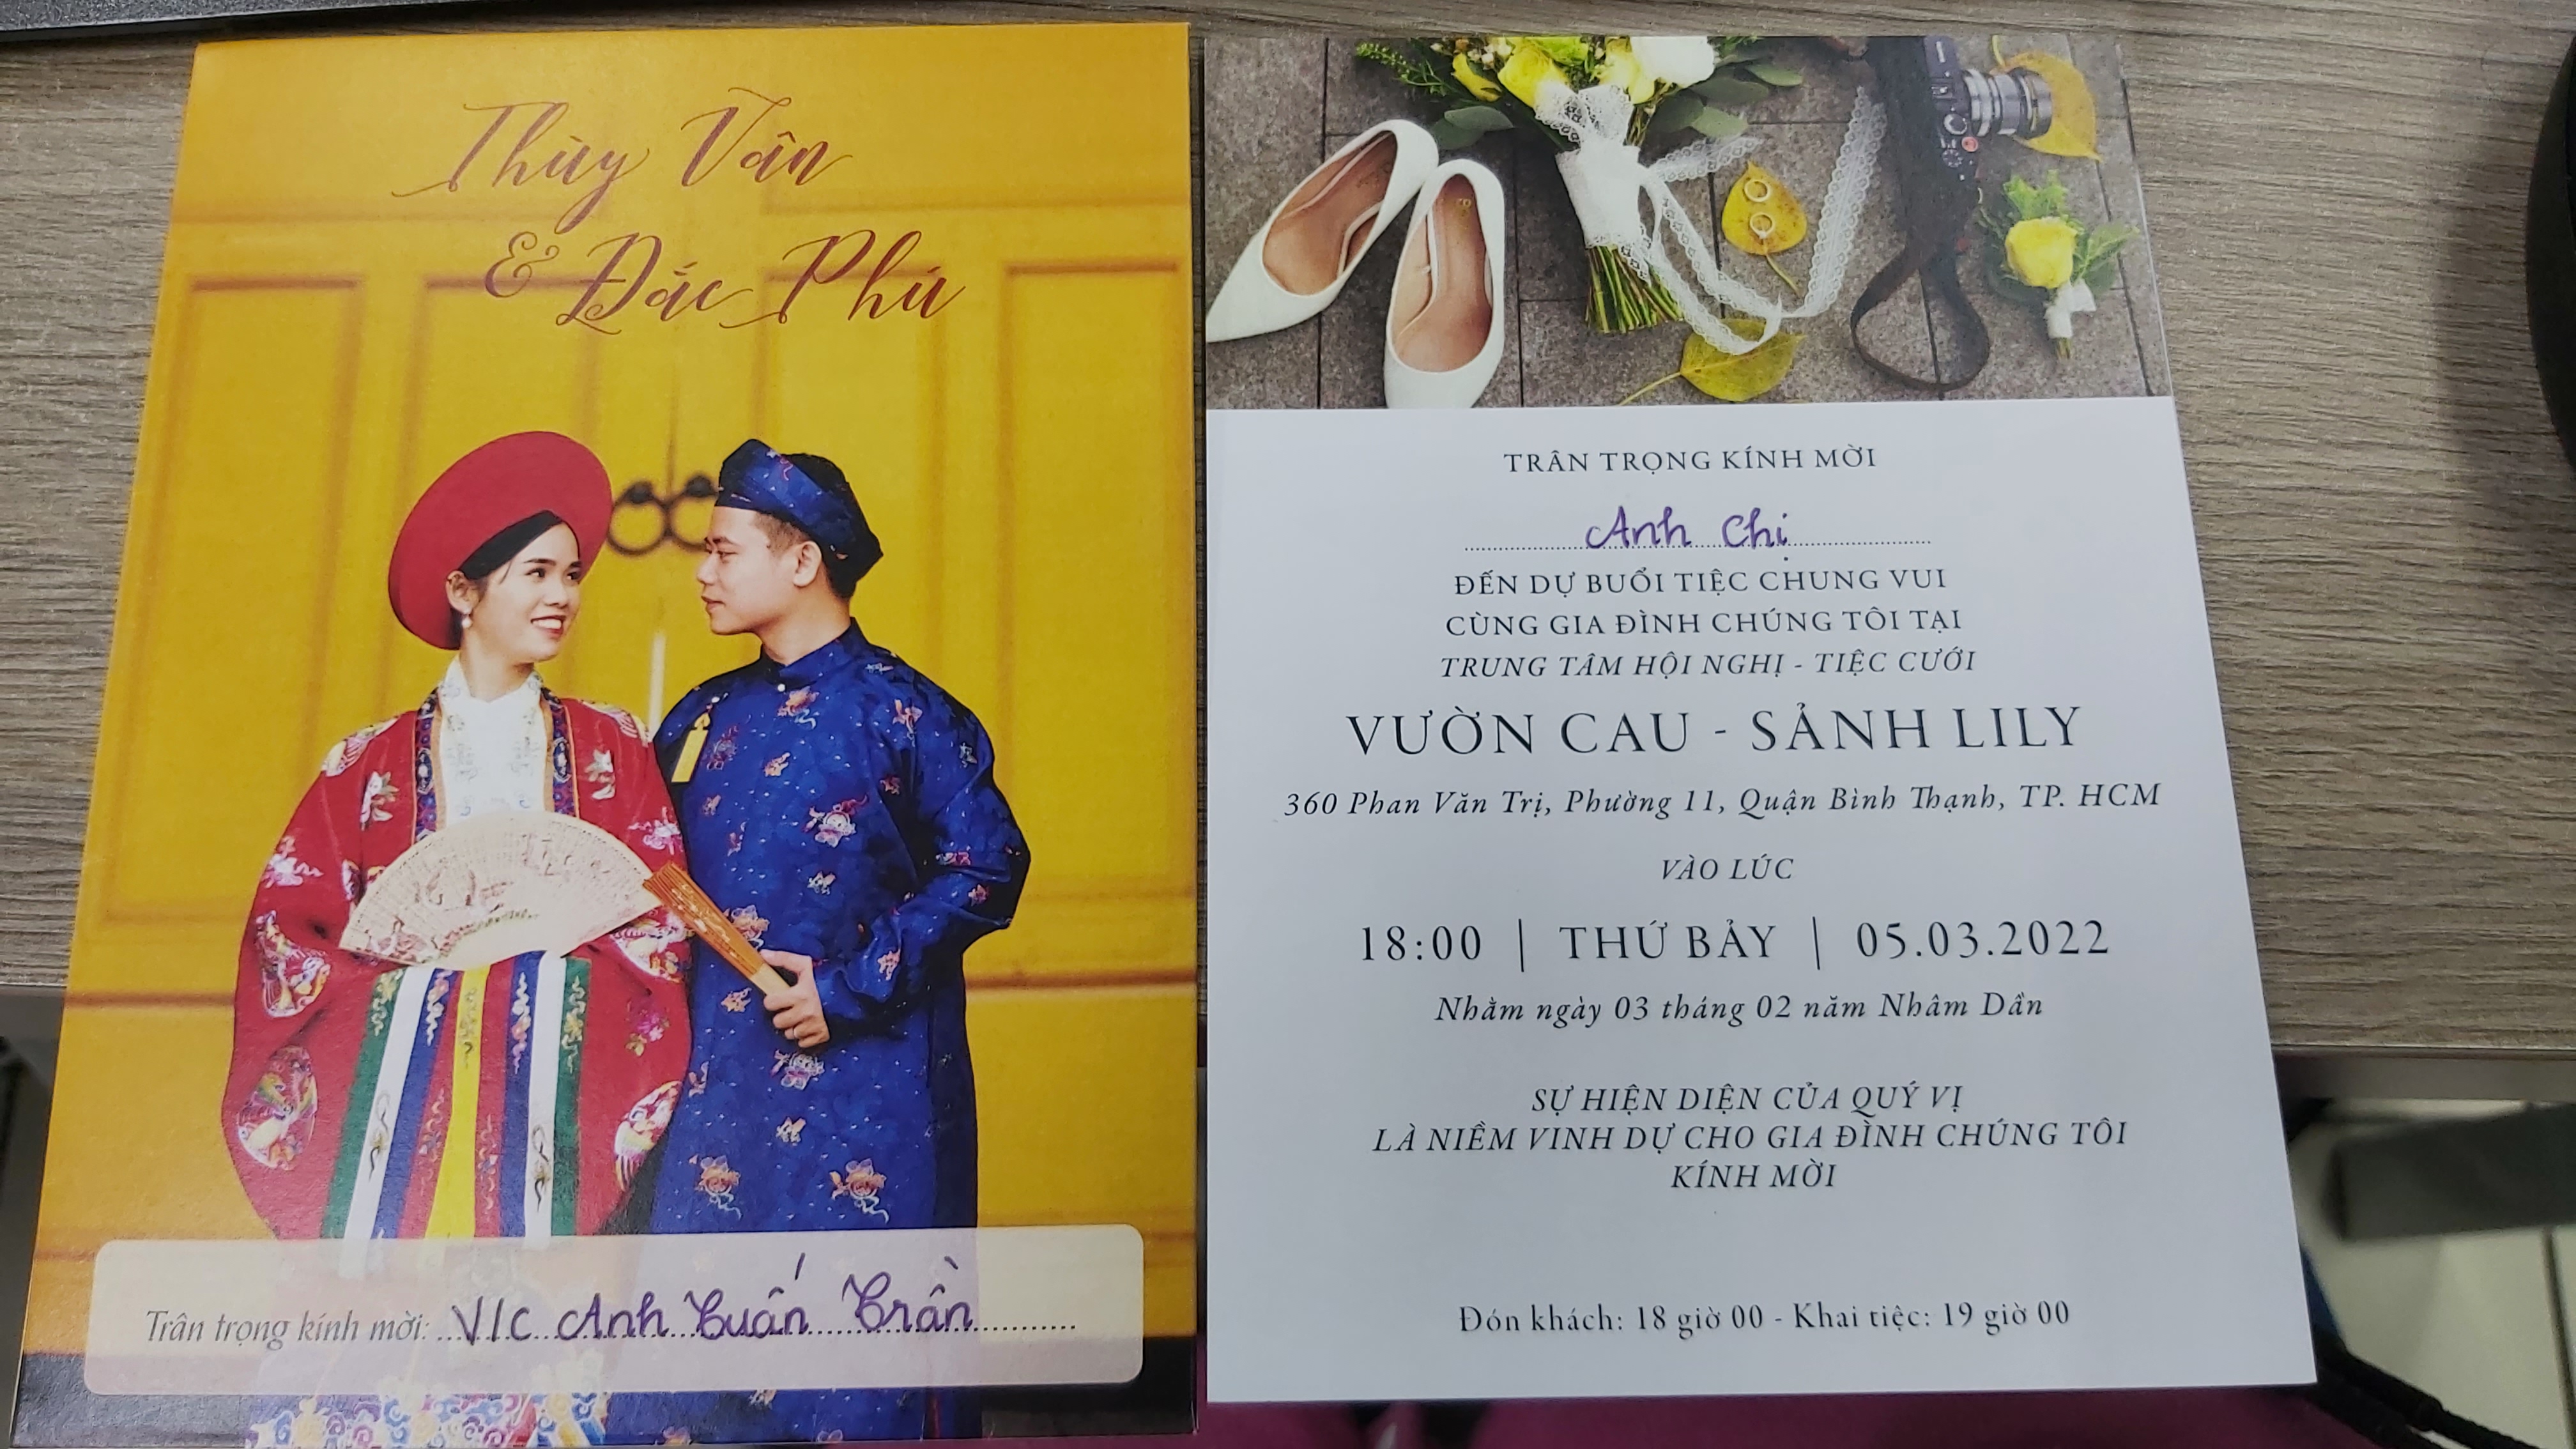 Thùy Vân
& Đức Phú
Trân trọng kính mời: V/c Anh Tuấn Trần
TRÂN TRỌNG KÍNH MỜI
Anh Chị
ĐẾN DỰ BUỔI TIỆC CHUNG VUI
CÙNG GIA ĐÌNH CHÚNG TÔI TẠI
TRUNG TÂM HỘI NGHỊ - TIỆC CƯỚI
VƯỜN CAU - SẢNH LILY
360 Phan Văn Trị, Phường 11, Quận Bình Thạnh, TP. HCM
VÀO LÚC
18:00 | THỨ BẢY | 05.03.2022
Nhằm ngày 03 tháng 02 năm Nhâm Dần
SỰ HIỆN DIỆN CỦA QUÝ VỊ
LÀ NIỀM VINH DỰ CHO GIA ĐÌNH CHÚNG TÔI
KÍNH MỜI
Đón khách: 18 giờ 00 - Khai tiệc: 19 giờ 00